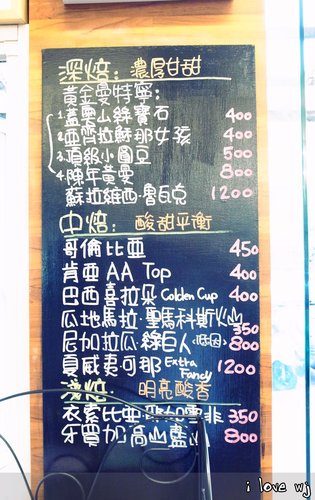 深焙: 濃厚甘甜
黃金曼特寧:
1.蓋奧山綠寶石 400
2.亞齊拉蘇那女孩 400
3.頂級小圓豆 500
4.陳年黃曼 800
蘇拉維西·魯瓦克 1200
中焙: 酸甜平衡
哥倫比亞 450
肯亞 AA Top 400
巴西喜拉朵 Golden Cup 400
瓜地馬拉·聖馬科斯火山 350
尼加拉瓜·綠巨人(低因) 800
夏威夷可那 Extra Fancy 1200
淺焙 明亮酸香
衣索比亞 耶加雪非 350
牙買加:高山藍山 800
i love wj